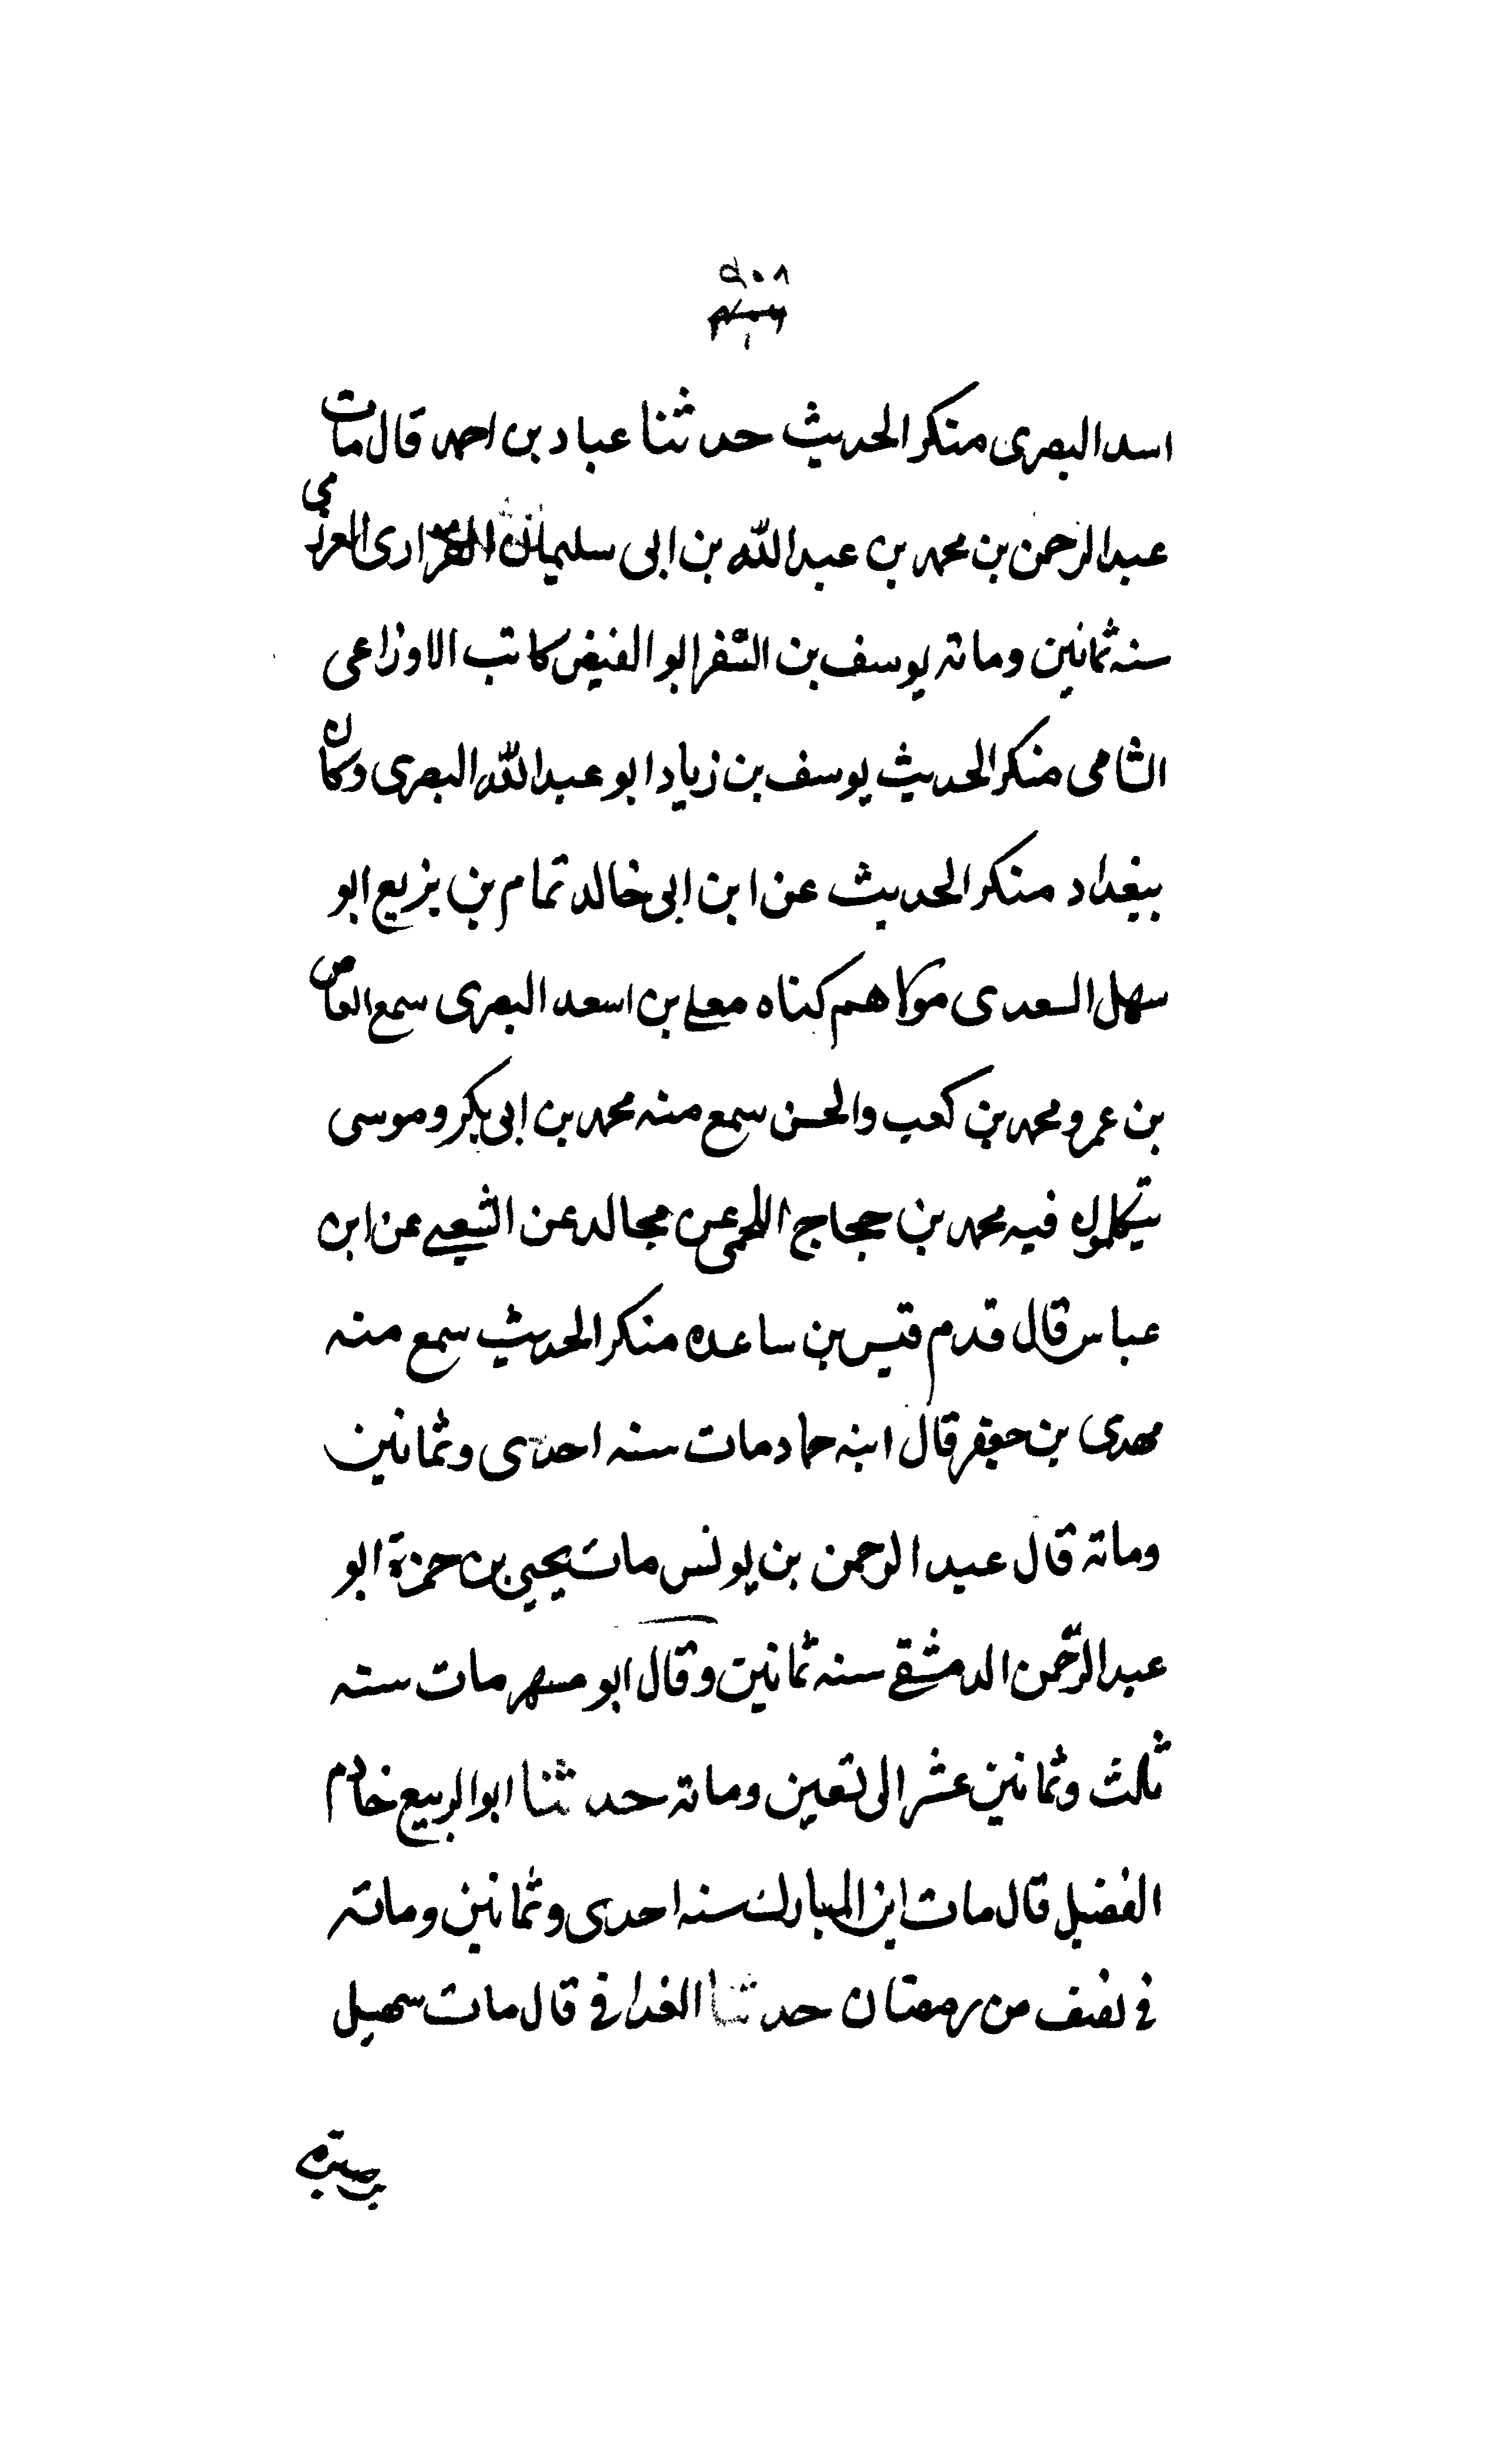 ٩٠٨
اسد البصرى منكر الحديث حدثنا عباد بن احمد قال مات
عبد الرحمن بن محمد بن عبد الله بن ابى سليمان الفزارى العرزمى
سنه ثمانين ومائة يوسف بن السفر ابو الفيض كاتب الاوزاعى
الشامى منكر الحديث يوسف بن زياد ابو عبد الله البصرى وكان
ببغداد منكر الحديث عن ابن ابى خالد تمام بن بزيع ابو
سهل السعدى مولاهم كناه معلى بن اسعد البصرى سمع العاص
بن عمرو ومحمد بن كعب والحسن سمع منه محمد بن ابى بكر وموسى
يتكلمون فيه محمد بن حجاج اللخمى عن مجالد عن الشعبى عن ابن
عباس قال قدم قيس بن ساعده منكر الحديث سمع منه
مهدى بن جعفر قال ابنه حماد مات سنه احدى وثمانين
ومائة قال عبد الرحمن بن يونس مات يحيى بن حمزة ابو
عبد الرحمن الدمشقى سنه ثمانين وقال ابو مسهر مات سنه
ثلث وثمانين عشر الى تسعين ومائة حدثنا ابو الربيع خادم
الفضيل قال مات ابن المبارك سنه احدى وثمانين ومائة
فى نصف من رمضان حدثنا الغدانى قال مات سهيل